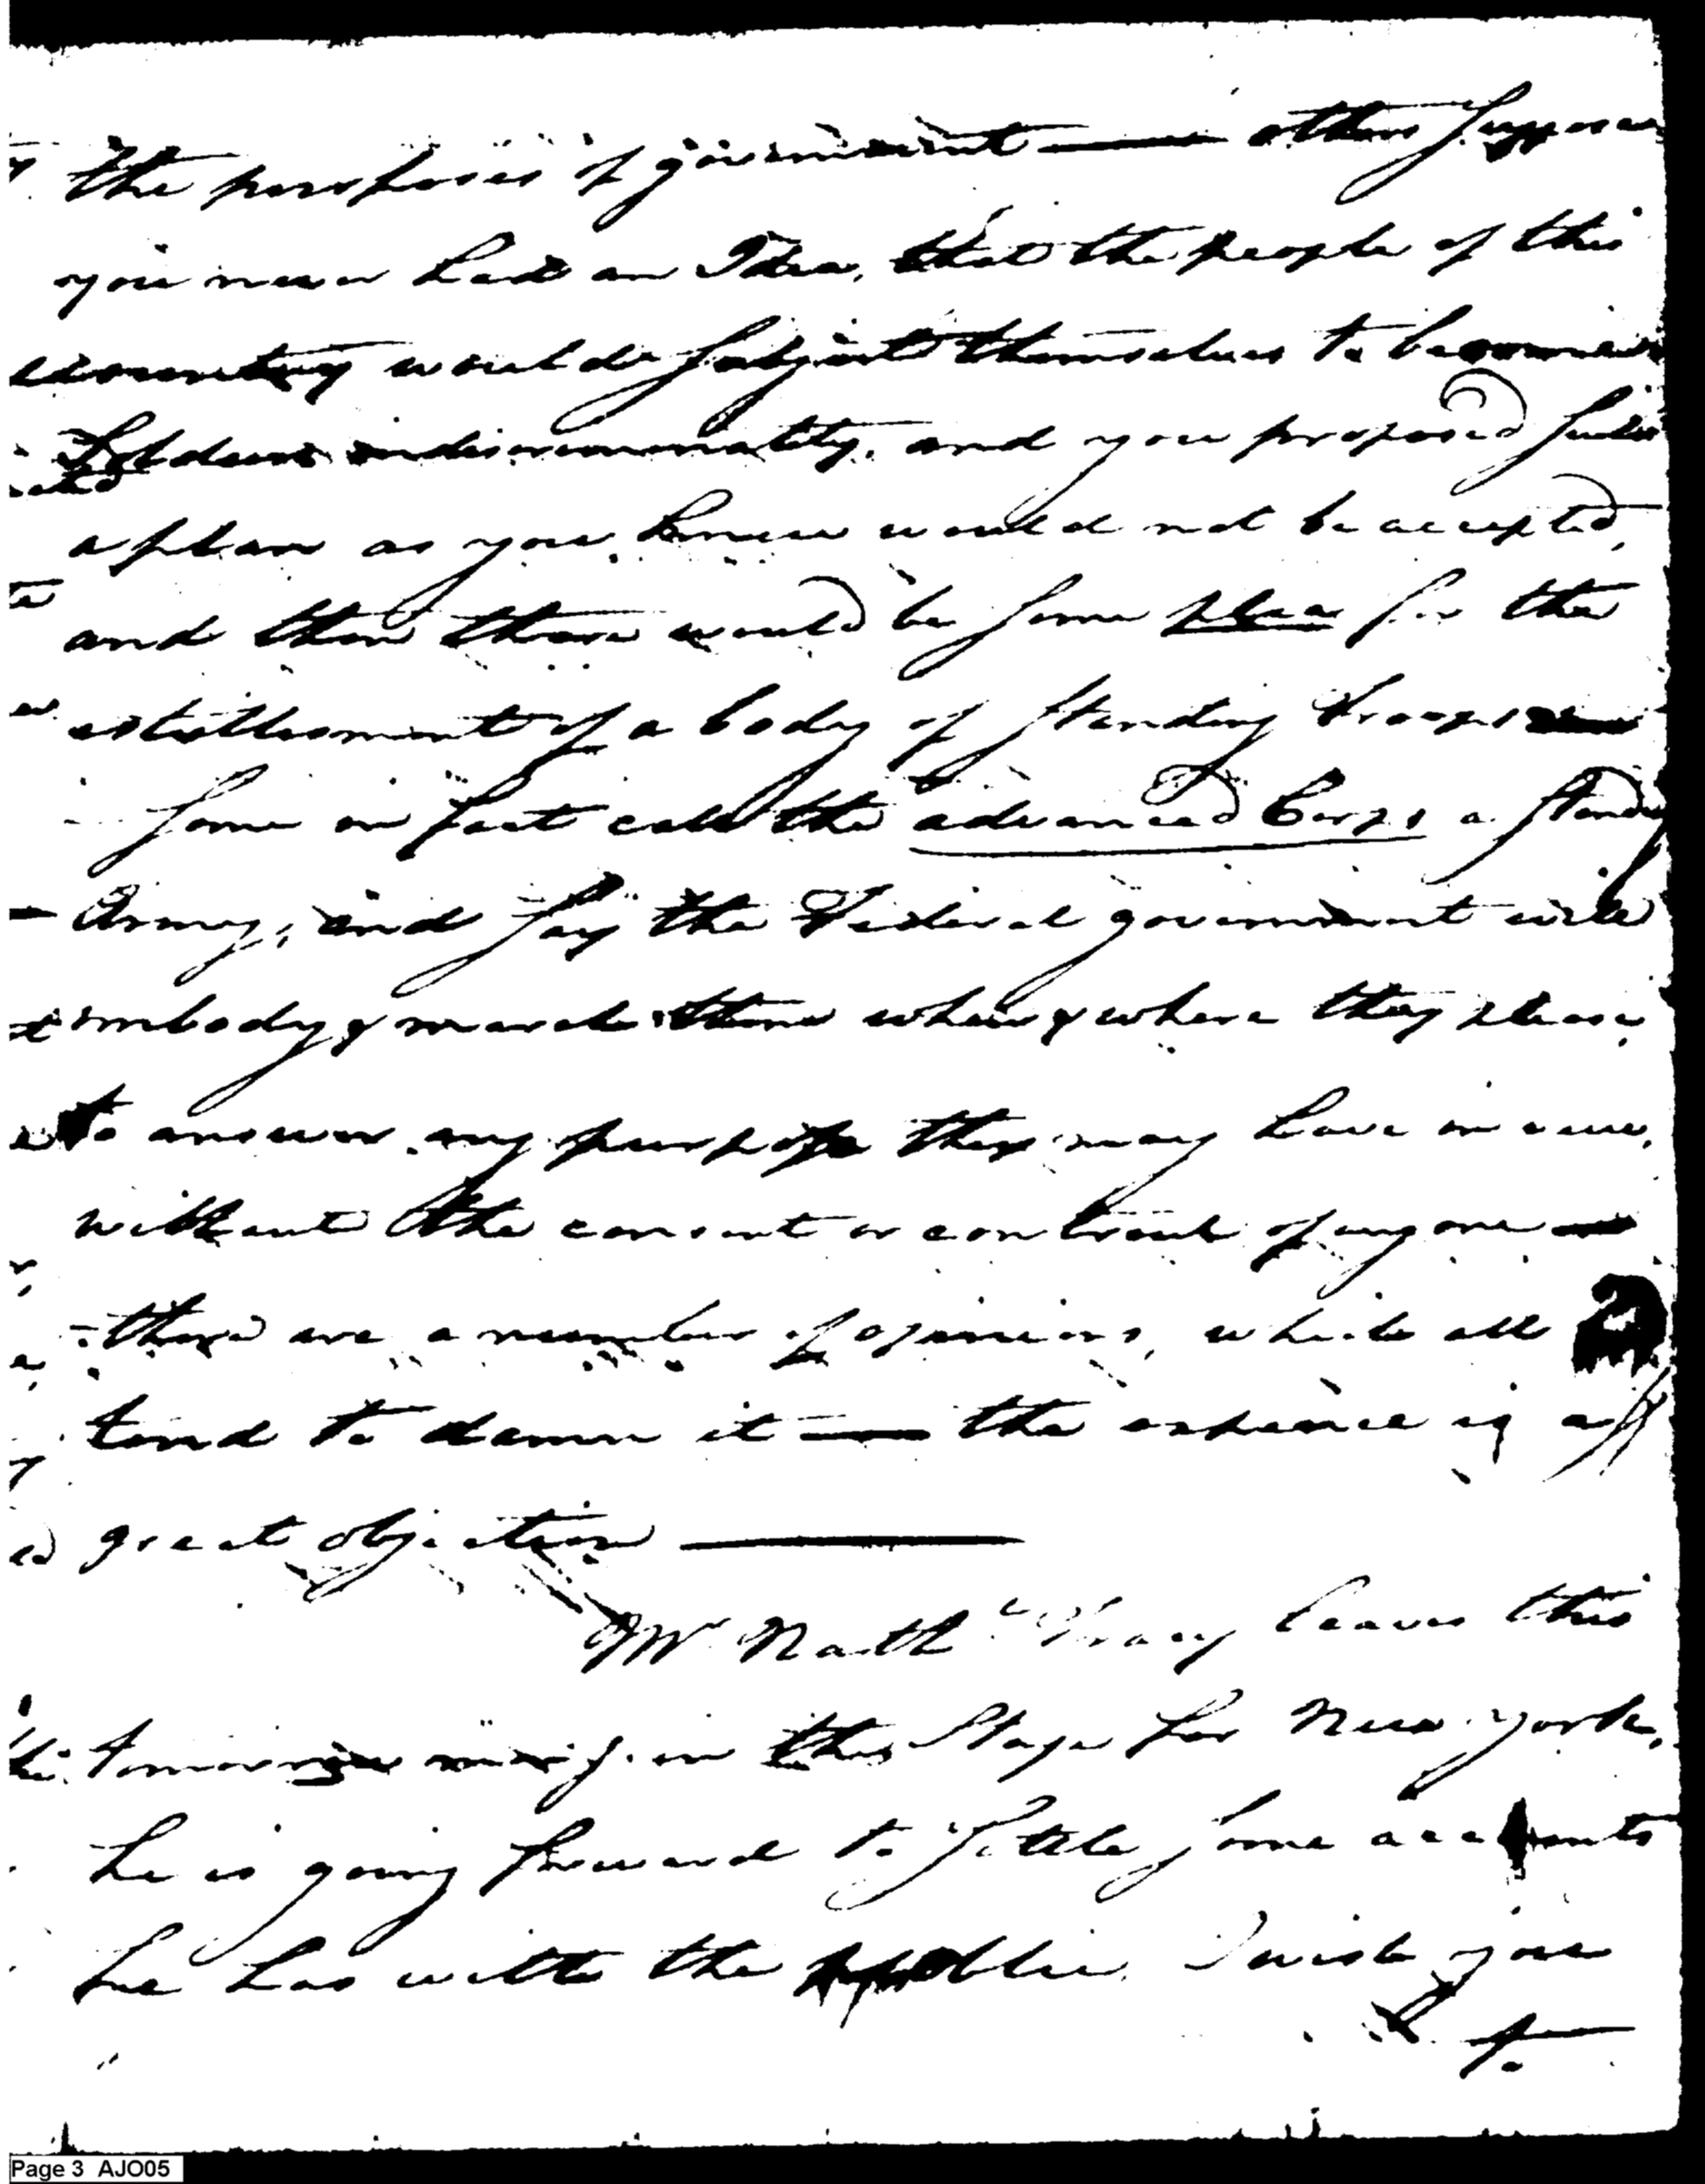 the purposes of government — others suppose
you never had an Idea, that the people of this
country would subject themselves to become
Soldiers indiscriminately, and you proposed such
a plan as you knew would not be accepted,
and then there would be some plea for the
establishment of a body of standing troops —
some in fact call the advanced Corps a standing
Army, and say the Federal government will
embody & march them when & where they please,
to answer any purpose they may have in view,
without the consent or controul of any one —
there are a number of opinions, which all
tend to damn it — the expence is a
great objection —
Mr Nathl Tracy leaves this
tomorrow morng. in the Stage for New york,
he is going forward to settle some accounts
he has with the publie. I wish you
to
Page 3 AJO05